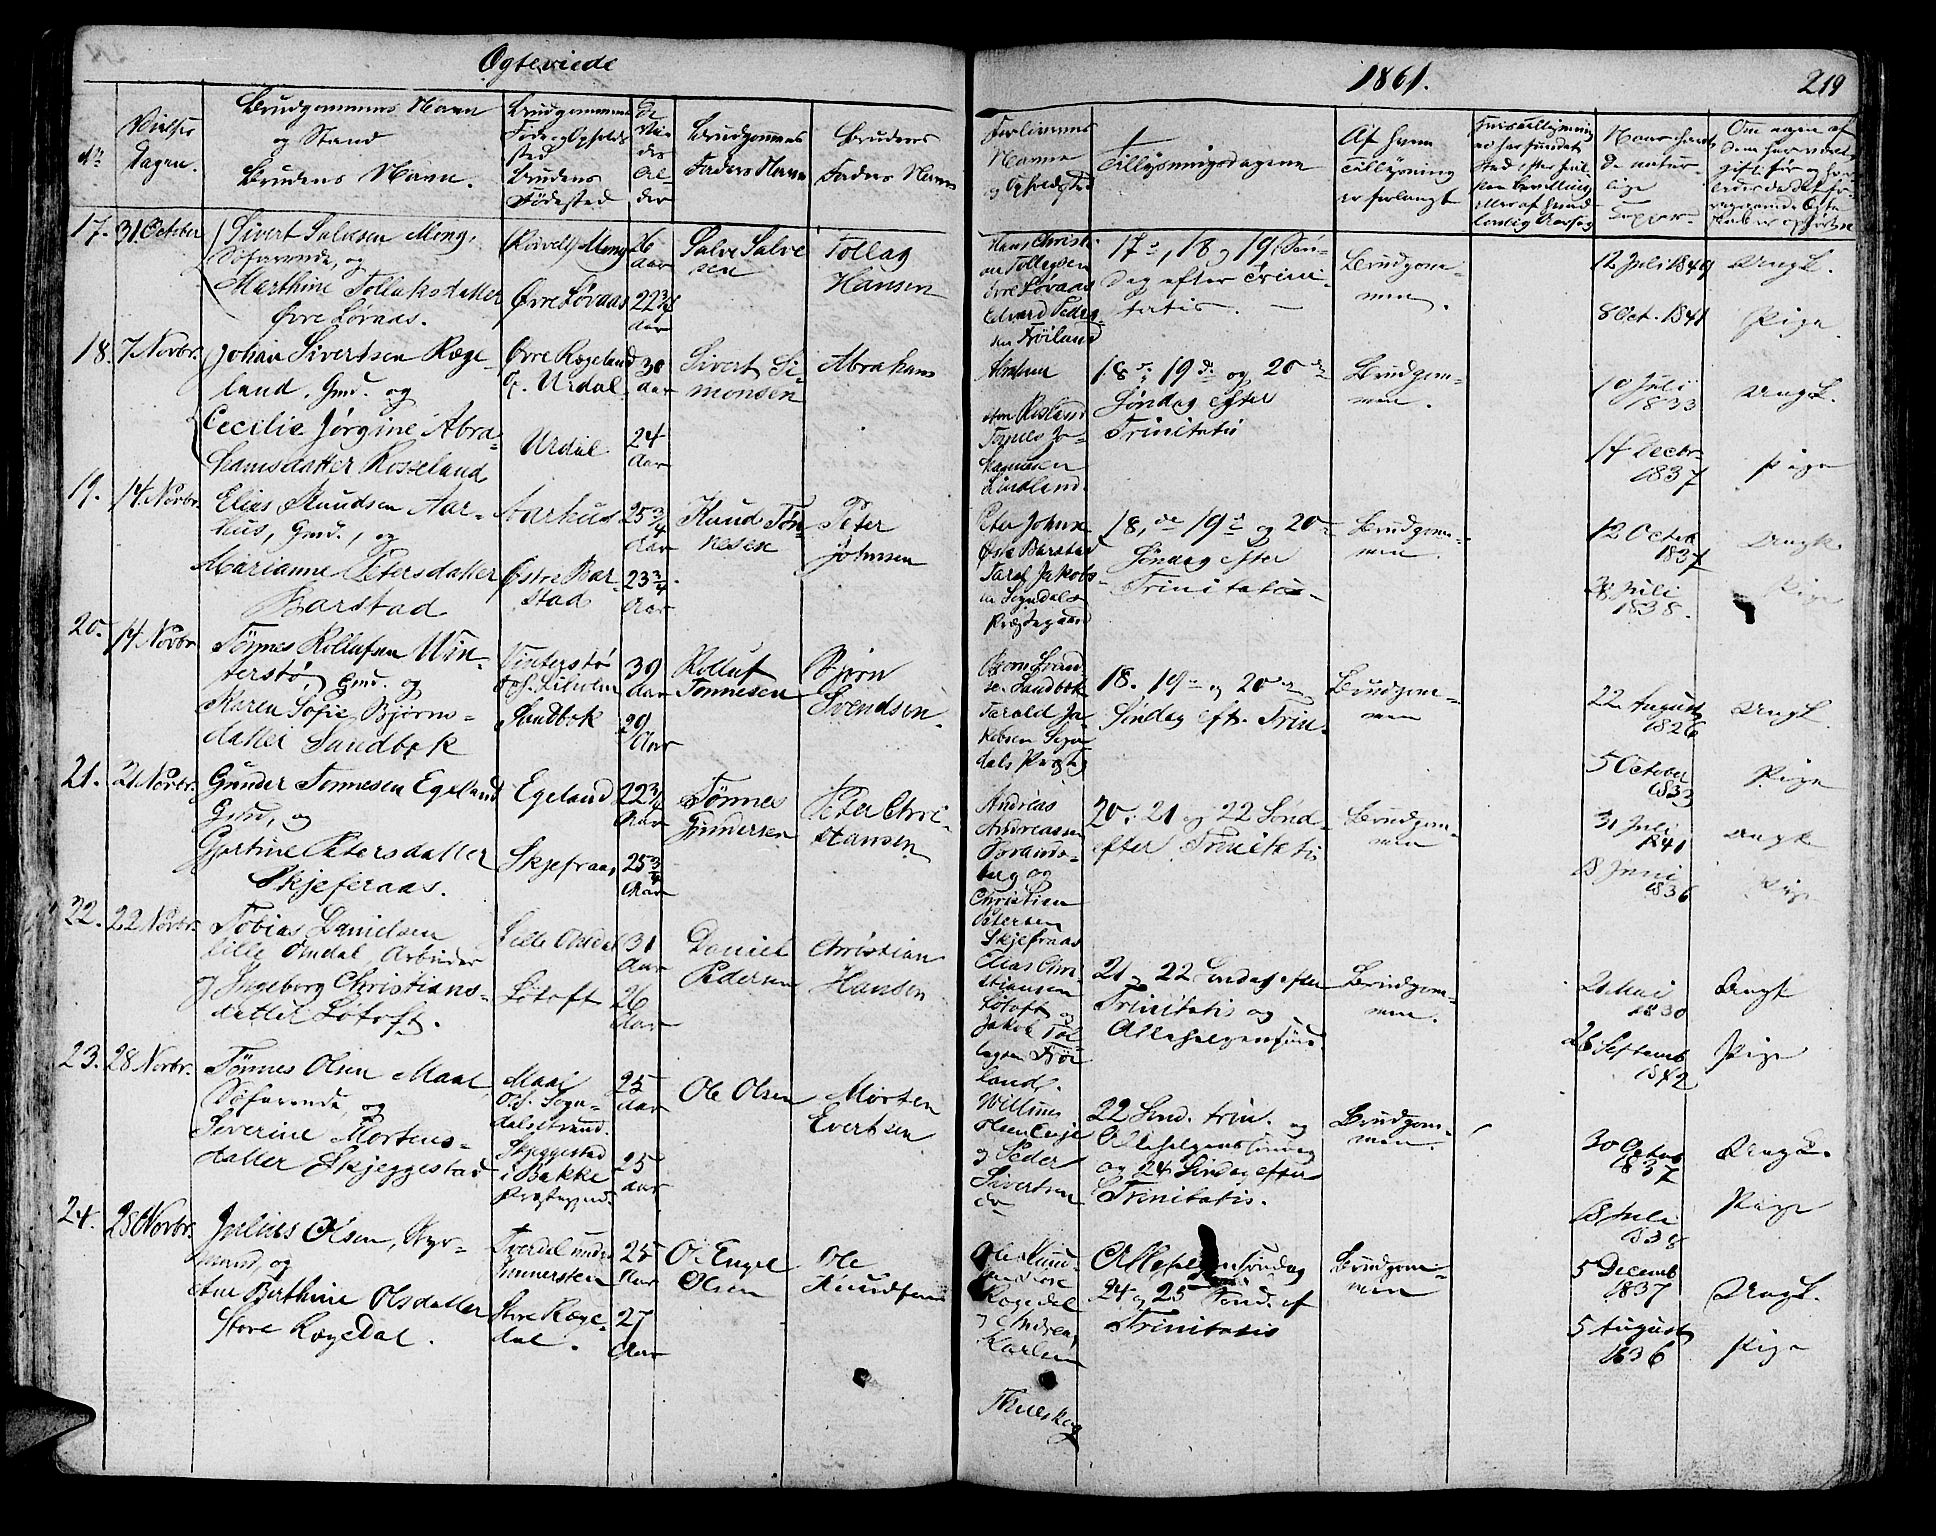 Ægteviede
1861.
219
No
Vielses Dagen.
Brudgommens Navn
og Stand
Brudens Navn.
Brudgommens
Føde og Opholds
sted
Brudens
Fødested
De
Vie
des
Al
der
Brudgommens
Faders Navn
Brudens
Faders Navn
Forlovernes
Navne
og Opholdsted
Tillysningsdagene
Af hvem
Tillysning
er forlangt
Naar havt
de natur-
lige
Kopper
17.
31 October
Sivert Salvesen Mong,
Søfarende, og
Marthine Tollaksdatter
Øvre Løvaas.
Mong
Øvre Løvaas
26
Aar
22 3/4
Aar
Salve Salve
sen
Tollag
Hansen
Hans Christi
an Tollagsen
Øvre Løvaas
Edvard Peders
sen Frøiland
17de, 18 og 19 Søn-
dag efter Trini-
tatis.
Brudgom-
men.
12 Juli 1849
8 Oct. 1841
Ungk.
Pige.
18.
7 Novbr.
Johan Sivertsen Ræge-
land, Gmd. og
Cecilie Jørgine Abra-
hamsdatter Rosseland
Øvre Rægeland
i Urdal
Urdal
30
Aar
24
Aar
Sivert Si
monsen
Abraham
Tønnes Jo-
hannesen
Lindland.
18de 19de og 20de
Søndag efter
Trinitatis
Brudgom-
men.
10 Juli
1833
14 Decbr
1837
Ungk.
Pige
19.
14 Novbr.
Elias Knudsen Aar-
hus, Gmd., og
Marianne Petersdatter
Barstad
Aarhus
Østre Bar-
stad
25 3/4
Aar
23 3/4
Aar
Knud Tøn-
nesen
Peter
Johnsen
Peter Johnsen
Østre Barstad
Taral Jakobs-
en Sogndals
Præstegaard
18, de 19de og 20de
Søndag efter
Trinitatis
Brudgom-
men.
12 October
1837
28 Juli
1838.
Ungk.
Pige
20.
14 Novbr.
Tønnes Rollufsen Win-
terstø, Gmd. og
Karen Sofie Bjørns-
datter Sandbæk
Vinterstø
Sandbæk
39
Aar
29
Aar
Rolluf
Tønnesen
Bjørn
Svendsen.
Bjørn Svend
sen Sandbæk
Tarald Ja-
kobsen Sogn
dals Prstg
18. 19de og 20de
Søndag eft. Trin.
Brudgom-
men
22 August
1826
5 October
1833
Ungk.
Pige
21.
21 Novbr.
Gunder Tønnesen Egeland
Gmd, og
Gjertine Petersdatter
Skjeferaas.
Egeland
Skjefraas
22 3/4
Aar
25 3/4
Aar
Tønnes
Gundersen
Peter Chri-
stiansen
Andreas
Andreassen
Strands-
berg og
Christian
Petersen
Skjefraas
20. 21 og 22 Sønd-
efter Trinitatis
Brudgom-
men
31 Juli
1841
18 Juni
1836
Ungk
Pige
22.
22 Novbr.
Tobias Danielsen
lille Omdal, Arbeider
og Ingeborg Christians-
datter Løtoft.
Lille Omdal
Løtoft
31
Aar
26
Aar
Daniel
Pedersen
Christian
Hansen
Elias Chri-
stiansen
Løtoft og
Jakob Tol-
lagsen Frøi
land.
21 og 22 Søndag efter
Trinitatis og
Allehelgensønd.
Brudgom-
men.
2 Mai
1830
26 Septemb
1842
Ungk
Pige
23.
28 Novbr.
Tønnes Olsen Maal
Søfarende, og
Severine Mortens-
datter Skjeggestad
Maal
Oph. Sogn-
dalsstrand.
Skjeggestad
i Bakke
Præstegjeld.
25
Aar
25
Aar
Ole Olsen
Morten
Evertsen
Willums
Olsen Eeje
og Peder
Sivertsen
do
22 Sønd. trin. og
Allehelgens Søndag
og 24 Søndag efter
Trinitatis.
Brudgom-
men.
30 October
1837
18 Juli
1838
Ungk.
Pige
24.
28 Novbr.
Julius Olsen, Styr-
mand, og
Ane Berthine Olsdatter
Store Rægedal.
Store Ræge-
dal.
25
Aar
27
Aar
Ole Engel
Olsen
Ole
Knudsen
Ole Knud-
sen Store
Rægedal
og Andreas
Karlsen
Allehelgensøndag
24 og 25 Sønd. ef
Trinitatis
Brudgom-
men
5 Decemb
1837
5 August
1836
Ungk.
Pige